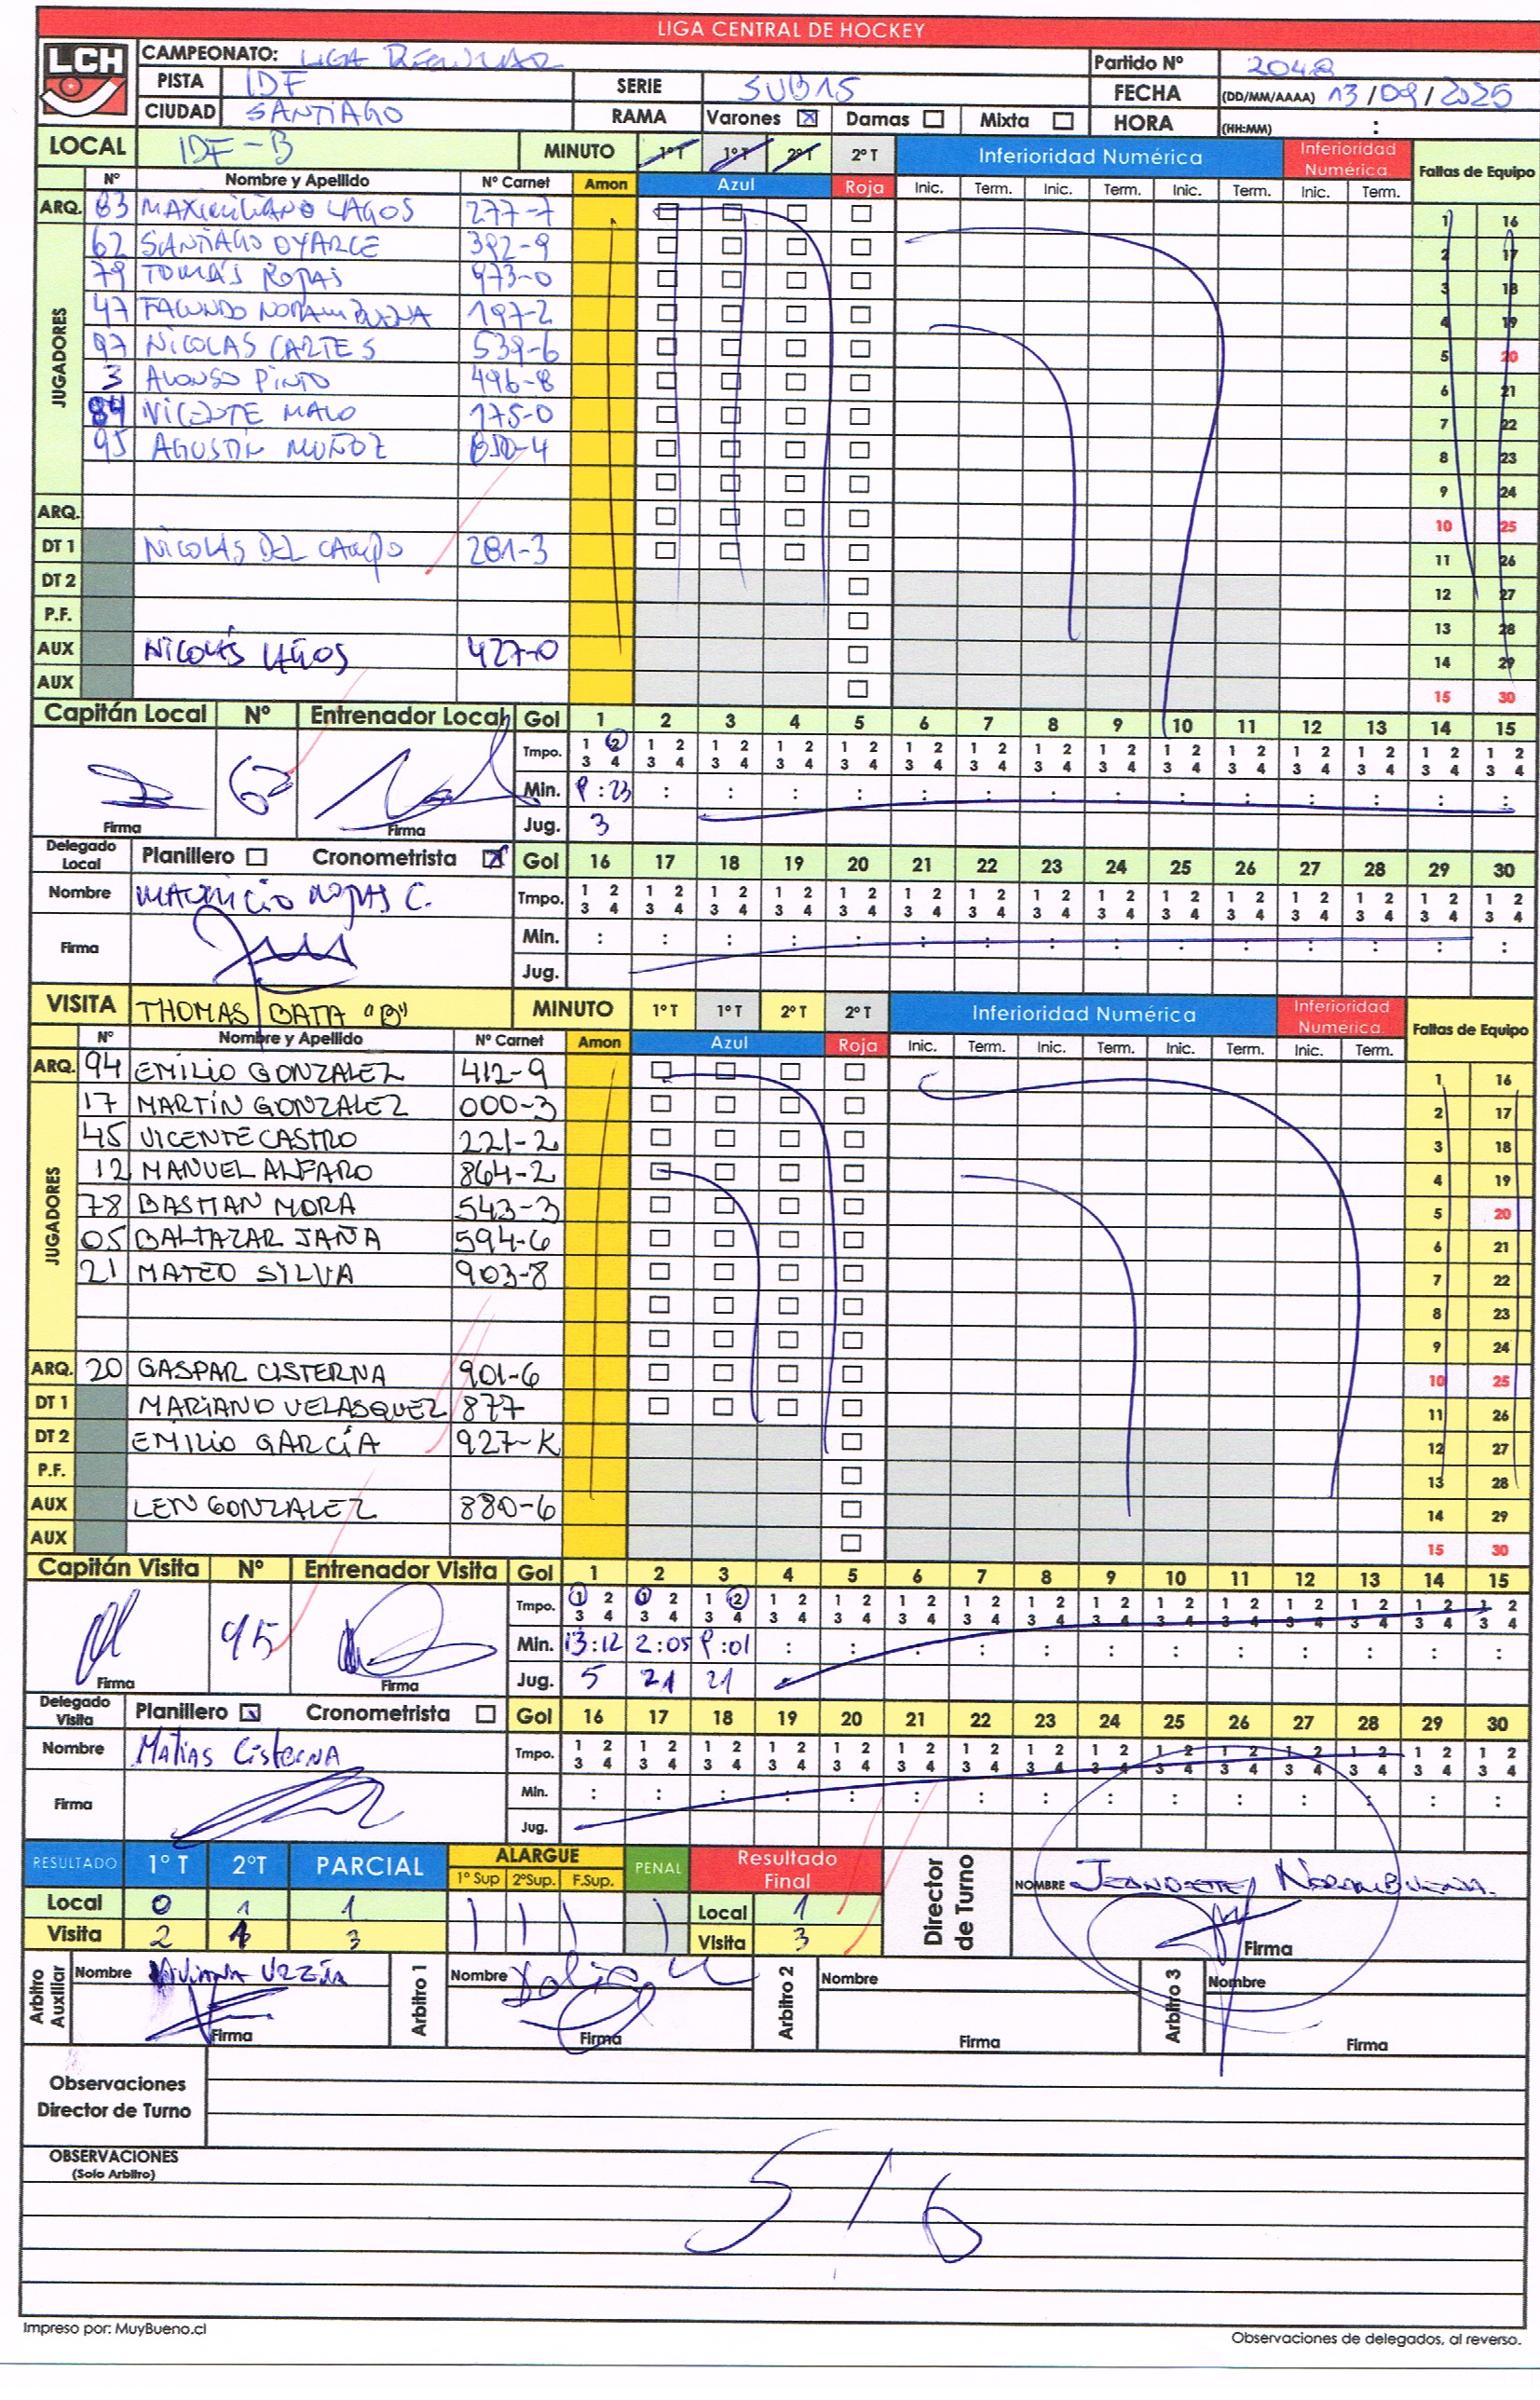 LIGA CENTRAL DE HOCKEY
LCH
CAMPEONATO: LIGA REGULAR
Partido Nº 2048
PISTA IDF SERIE SUB15 FECHA (DD/MM/AAAA) 13/09/2025
CIUDAD SANTIAGO RAMA Varones ☒ Damas ☐ Mixta ☐ HORA (HH:MM) :
LOCAL IDF-B MINUTO 1º T 1º T 2º T 2º T Inferioridad Numérica Inferioridad Numérica Faltas de Equipo
Nº Nombre y Apellido Nº Carnet Amon Azul Roja Inic. Term. Inic. Term. Inic. Term. Inic. Term.
JUGADORES
ARQ. 63 MAXIMILIANO LAGOS 277-7 1 16
62 SANTIAGO OYARCE 392-9 2 17
79 TOMÁS ROJAS 973-0 3 18
47 FACUNDO NORAMBUENA 197-2 4 19
97 NICOLAS CARTES 539-6 5 20
3 ALONSO PINTO 496-8 6 21
84 VICENTE MALO 175-0 7 22
95 AGUSTÍN MUÑOZ 8 23
9 24
ARQ. 10 25
DT 1 NICOLAS DEL CAMPO 281-3 11 26
DT 2 12 27
P.F. 13 28
AUX NICOLÁS LAGOS 427-0 14 29
AUX 15 30
Capitán Local Nº Entrenador Local Gol 1 2 3 4 5 6 7 8 9 10 11 12 13 14 15
Tmpo. 1 2 3 4 1 2 3 4 1 2 3 4 1 2 3 4 1 2 3 4 1 2 3 4 1 2 3 4 1 2 3 4 1 2 3 4 1 2 3 4 1 2 3 4 1 2 3 4 1 2 3 4 1 2 3 4 1 2 3 4
62 Min. 9:23 : : : : : : : : : : : : : :
Firma Firma Jug. 3
Delegado Local Planillero ☐ Cronometrista ☒ Gol 16 17 18 19 20 21 22 23 24 25 26 27 28 29 30
Nombre MAURICIO ROJAS C. Tmpo. 1 2 3 4 1 2 3 4 1 2 3 4 1 2 3 4 1 2 3 4 1 2 3 4 1 2 3 4 1 2 3 4 1 2 3 4 1 2 3 4 1 2 3 4 1 2 3 4 1 2 3 4 1 2 3 4 1 2 3 4
Firma Min. : : : : : : : : : : : : : : :
Jug.
VISITA THOMAS BATA "B" MINUTO 1º T 1º T 2º T 2º T Inferioridad Numérica Inferioridad Numérica Faltas de Equipo
Nº Nombre y Apellido Nº Carnet Amon Azul Roja Inic. Term. Inic. Term. Inic. Term. Inic. Term.
JUGADORES
ARQ. 94 EMILIO GONZALEZ 412-9 1 16
17 MARTÍN GONZALEZ 000-3 2 17
45 VICENTE CASTRO 221-2 3 18
12 MANUEL ALFARO 864-2 4 19
78 BASTIAN MORA 543-3 5 20
05 BALTAZAR JAÑA 594-6 6 21
21 MATEO SILVA 903-8 7 22
8 23
9 24
ARQ. 20 GASPAR CISTERNA 901-6 10 25
DT 1 MARIANO VELASQUEZ 877 11 26
DT 2 EMILIO GARCÍA 927-K 12 27
P.F. 13 28
AUX LEN GONZALEZ 880-6 14 29
AUX 15 30
Capitán Visita Nº Entrenador Visita Gol 1 2 3 4 5 6 7 8 9 10 11 12 13 14 15
Tmpo. 1 2 3 4 1 2 3 4 1 2 3 4 1 2 3 4 1 2 3 4 1 2 3 4 1 2 3 4 1 2 3 4 1 2 3 4 1 2 3 4 1 2 3 4 1 2 3 4 1 2 3 4 1 2 3 4 1 2 3 4
45 Min. 13:12 2:05 9:01 : : : : : : : : : : : :
Firma Firma Jug. 5 21 21
Delegado Visita Planillero ☒ Cronometrista ☐ Gol 16 17 18 19 20 21 22 23 24 25 26 27 28 29 30
Nombre Matias Cisterna Tmpo. 1 2 3 4 1 2 3 4 1 2 3 4 1 2 3 4 1 2 3 4 1 2 3 4 1 2 3 4 1 2 3 4 1 2 3 4 1 2 3 4 1 2 3 4 1 2 3 4 1 2 3 4 1 2 3 4 1 2 3 4
Firma Min. : : : : : : : : : : : : : : :
Jug.
RESULTADO 1º T 2ºT PARCIAL ALARGUE 1º Sup 2ºSup. F.Sup. PENAL Resultado Final
Local 0 1 1 Local 1
Visita 2 1 3 Visita 3
Director de Turno NOMBRE NORAMBUENA
Firma
Arbitro Auxiliar Nombre URZÚA Firma
Arbitro 1 Nombre Firma
Arbitro 2 Nombre Firma
Arbitro 3 Nombre Firma
Observaciones Director de Turno
OBSERVACIONES
(Solo Arbitro)
5/6
Impreso por: MuyBueno.cl
Observaciones de delegados, al reverso.